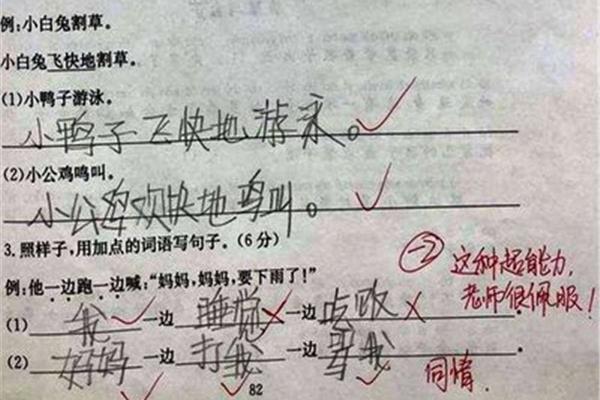 例:小白兔割草。
小白兔飞快地割草。
(1)小鸭子游泳。
小鸭子飞快地游泳。
(2)小公鸡鸣叫。
小公鸡欢快地鸣叫。
3.照样子,用加点的词语写句子。(6分)
-2 这种超能力,
老师很佩服!
例:他一边跑一边喊:“妈妈,妈妈,要下雨了!”
(1) 我 一边 睡觉 一边
(2) 妈妈 一边 打我 一边 骂我 。
同情.
82